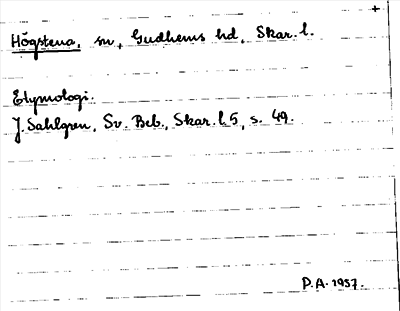 +
Högstena, sn, Gudhems hd, Skar. l.
Etymologi:
J. Sahlgren, Sv. Beb., Skar. l. 5, s. 49.
P.A. 1957.